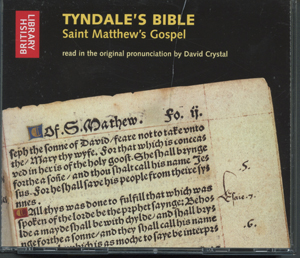 BRITISH
LIBRARY
TYNDALE'S BIBLE
Saint Matthew's Gospel
read in the original pronunciation by David Crystal
Of. S. Mathew. Fo. ij.
seph the sonne of David/ feare not to take vnto
the/ Mary thy wyfe. For that which is conceav
ved in her is of the holy goost. She shall brynge
forthe a sone/ and thou shalt call his name Jes
sus. For he shall save his people from theire sy
nnes.
All thys was done to fulfill that which was
spoken of the lorde be the prophet saynge: Behol
de a mayde shall be with chylde/ and shall brys
nge forthe a sonne/ and they shall call his name
which is as moche to saye be interpr
.5.
Esaie.7.
.6.